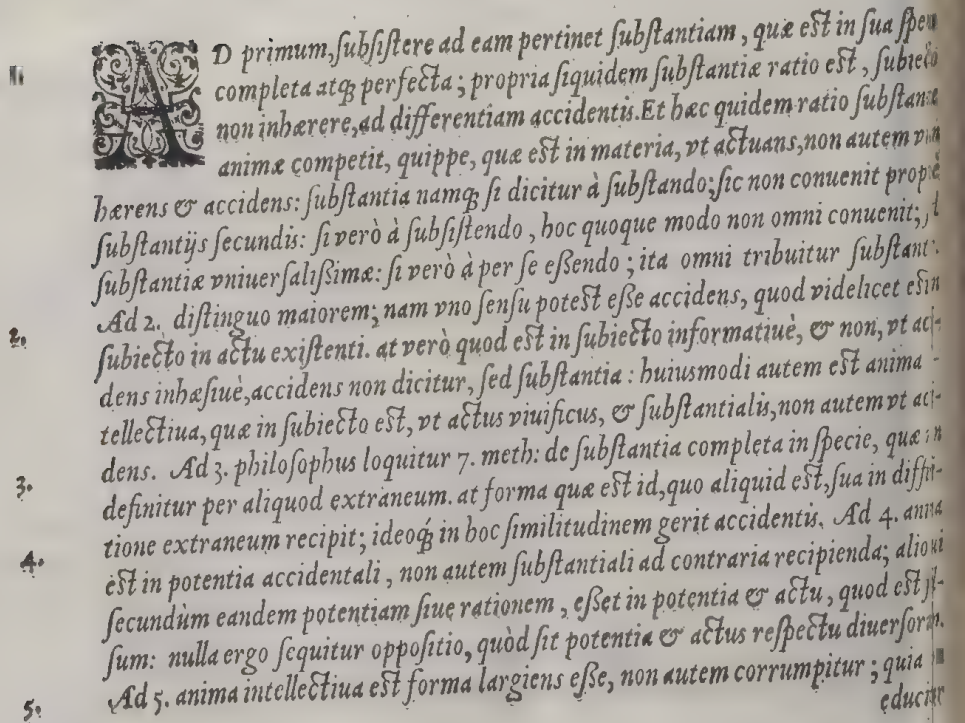 AD primum, ſubſiſtere ad eam pertinet ſubſtantiam, quæ eſt in ſua
completa atq; perfecta; propria ſiquidem ſubſtantiæ ratio eſt,
non inhærere, ad differentiam accidentis. Et hæc quidem ratio
animæ competit, quippe, quæ eſt in materia, vt actuans, non autem
hærens & accidens: ſubſtantia namq; ſi dicitur à ſubſtando; ſic non conuenit
ſubſtantijs ſecundis: ſi verò à ſubſiſtendo, hoc quoque modo non omni conuenit;
ſubſtantiæ vniuerſaliſſimæ: ſi verò à per ſe eſſendo; ita omni tribuitur
2. Ad 2. diſtinguo maiorem; nam vno ſenſu poteſt eſſe accidens, quod videlicet
ſubiecto in actu exiſtenti. at verò quod eſt in ſubiecto informatiuè, & non, vt
dens inhæſiuè, accidens non dicitur, ſed ſubſtantia: huiusmodi autem eſt anima
tellectiua, quæ in ſubiecto eſt, vt actus viuificus, & ſubſtantialis, non autem vt
3. dens. Ad 3. philoſophus loquitur 7. meth: de ſubſtantia completa in ſpecie, quæ
definitur per aliquod extraneum. at forma quæ eſt id, quo aliquid eſt, ſua in
tione extraneum recipit; ideoq́; in hoc ſimilitudinem gerit accidentis. Ad 4.
4. eſt in potentia accidentali, non autem ſubſtantiali ad contraria recipienda;
ſecundùm eandem potentiam ſiue rationem, eſſet in potentia & actu, quod eſt
ſum: nulla ergo ſequitur oppoſitio, quòd ſit potentia & actus reſpectu
5. Ad 5. anima intellectiua eſt forma largiens eſſe, non autem corrumpitur; quia